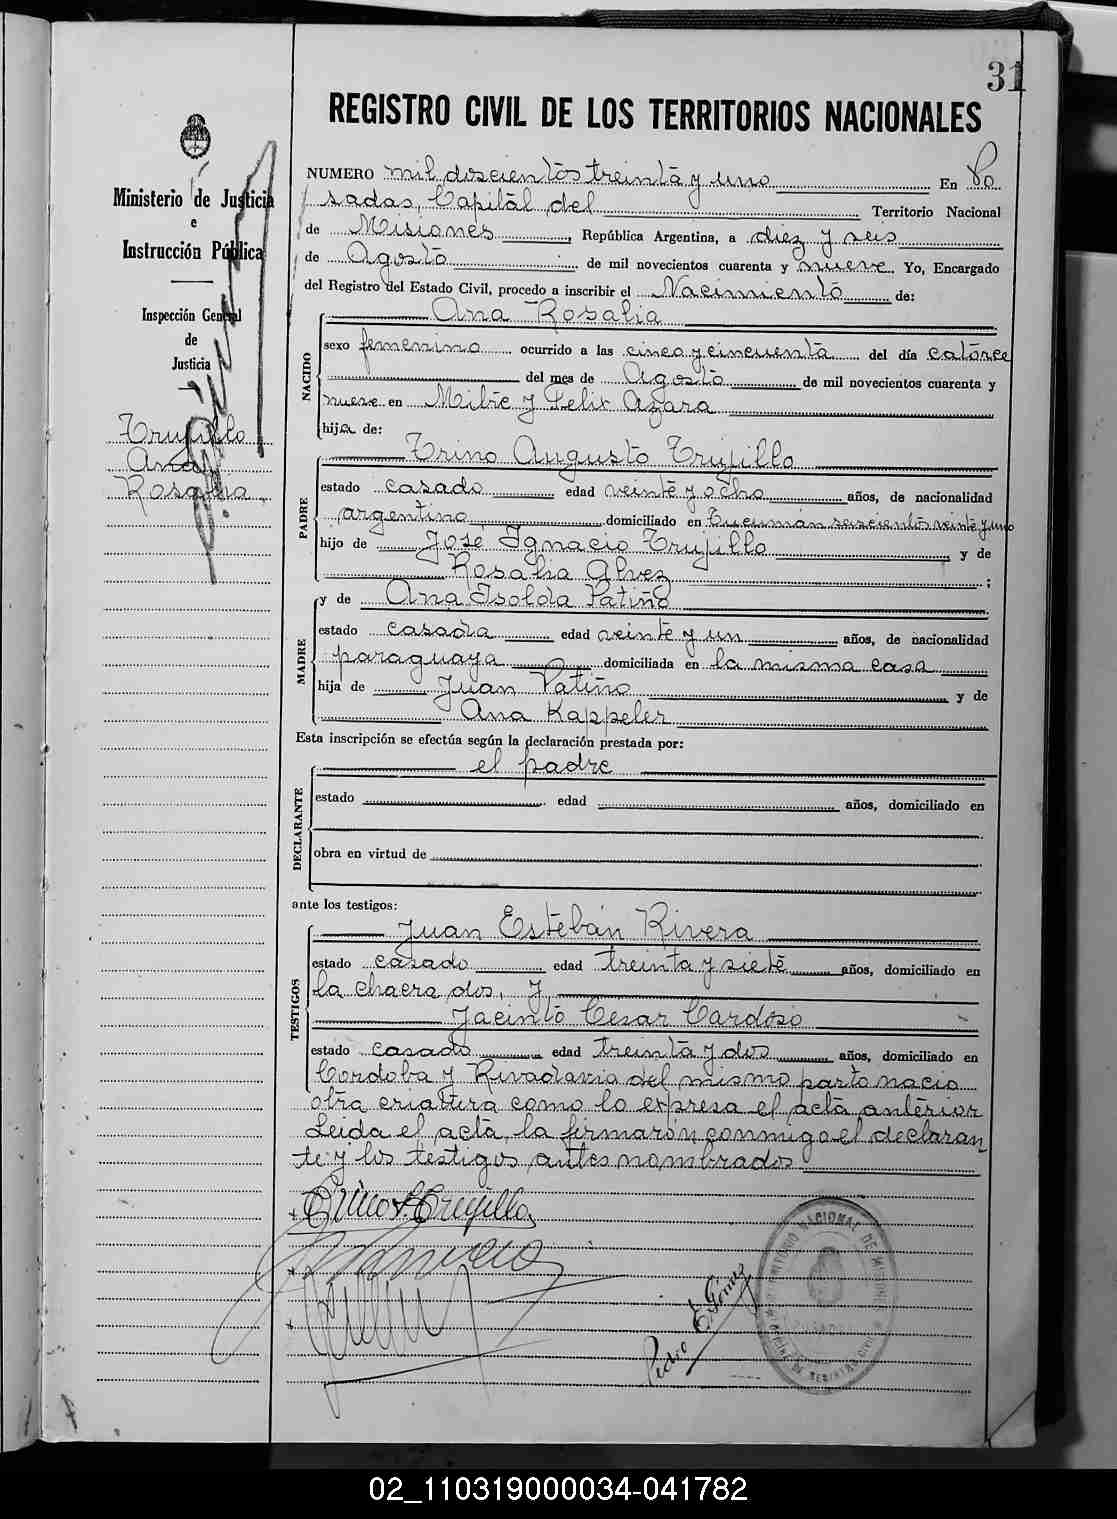 31
REGISTRO CIVIL DE LOS TERRITORIOS NACIONALES
Ministerio de Justicia
e
Instrucción Pública
Inspección General
de
Justicia
Trujillo
Ana
Rosalia
NUMERO mil doscientos treinta y uno En Po
sadas, Capital del Territorio Nacional
de Misiones, República Argentina, a diez y seis
de Agosto de mil novecientos cuarenta y nueve Yo, Encargado
del Registro del Estado Civil, procedo a inscribir el Nacimiento de:
NACIDO
Ana Rosalia
sexo femenino ocurrido a las cinco y cincuenta del día catorce
del mes de Agosto de mil novecientos cuarenta y
nueve en Mitre y Felix Azara
hija de:
PADRE
Trino Augusto Trujillo
estado casado edad veinte y ocho años, de nacionalidad
argentina domiciliado en Tucumán seiscientos veinte y uno
hijo de José Ignacio Trujillo y de
Rosalia Alvez ;
MADRE
y de Ana Isolda Patiño
estado casada edad veinte y un años, de nacionalidad
paraguaya domiciliada en la misma casa
hija de Juan Patiño y de
Ana Kappeler
Esta inscripción se efectúa según la declaración prestada por:
DECLARANTE
el padre
estado edad años, domiciliado en
obra en virtud de
ante los testigos:
TESTIGOS
Juan Esteban Rivera
estado casado edad treinta y siete años, domiciliado en
la chacra dos, y
Jacinto Cesar Cardoso
estado casado edad treinta y dos años, domiciliado en
Cordoba y Rivadavia del mismo parto nacio
otra criatura como lo expresa el acta anterior
Leida el acta, la firmarón conmigo el declaran-
te y los testigos antes nombrados
Trino A. Trujillo
Pedro E. Gómez
TERRITORIO NACIONAL DE MISIONES
POSADAS
02_110319000034-041782